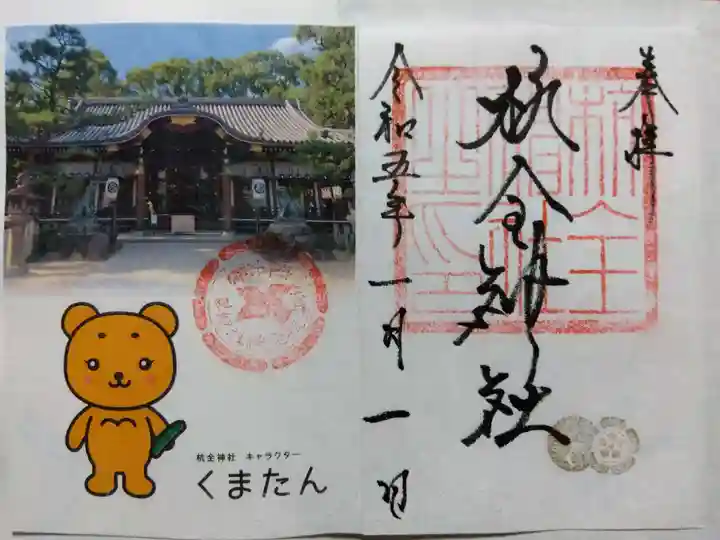 奉拝
杭全神社
令和五年一月一日
杭全
神社
之印
杭全神社 キャラクター
くまたん